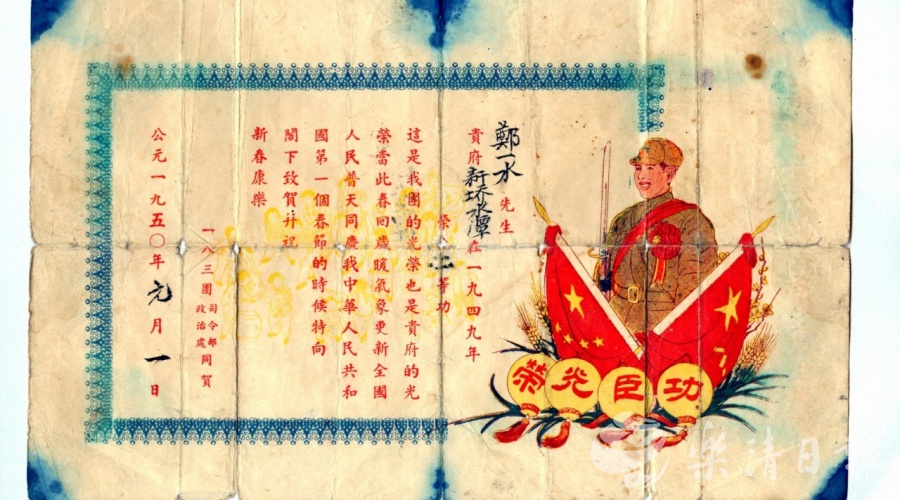 鄭一水先生
貴府新水潭在一九四九年
榮等功
這是我團的光榮也是貴府的光
榮當此春回歲暖氣象更新全國
人民普天同慶我中華人民共和
國第一個春節的時候特向
閣下致賀并祝
新春康樂
一八三團司令部政治處同賀
公元一九五〇年元月一日
功臣光榮
樂清日報